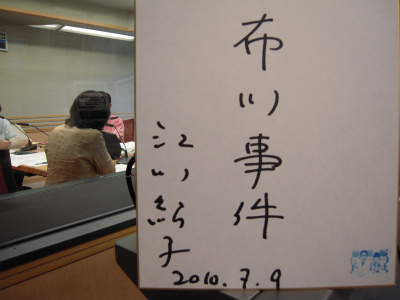 布川事件
江川紹子
2010.7.9